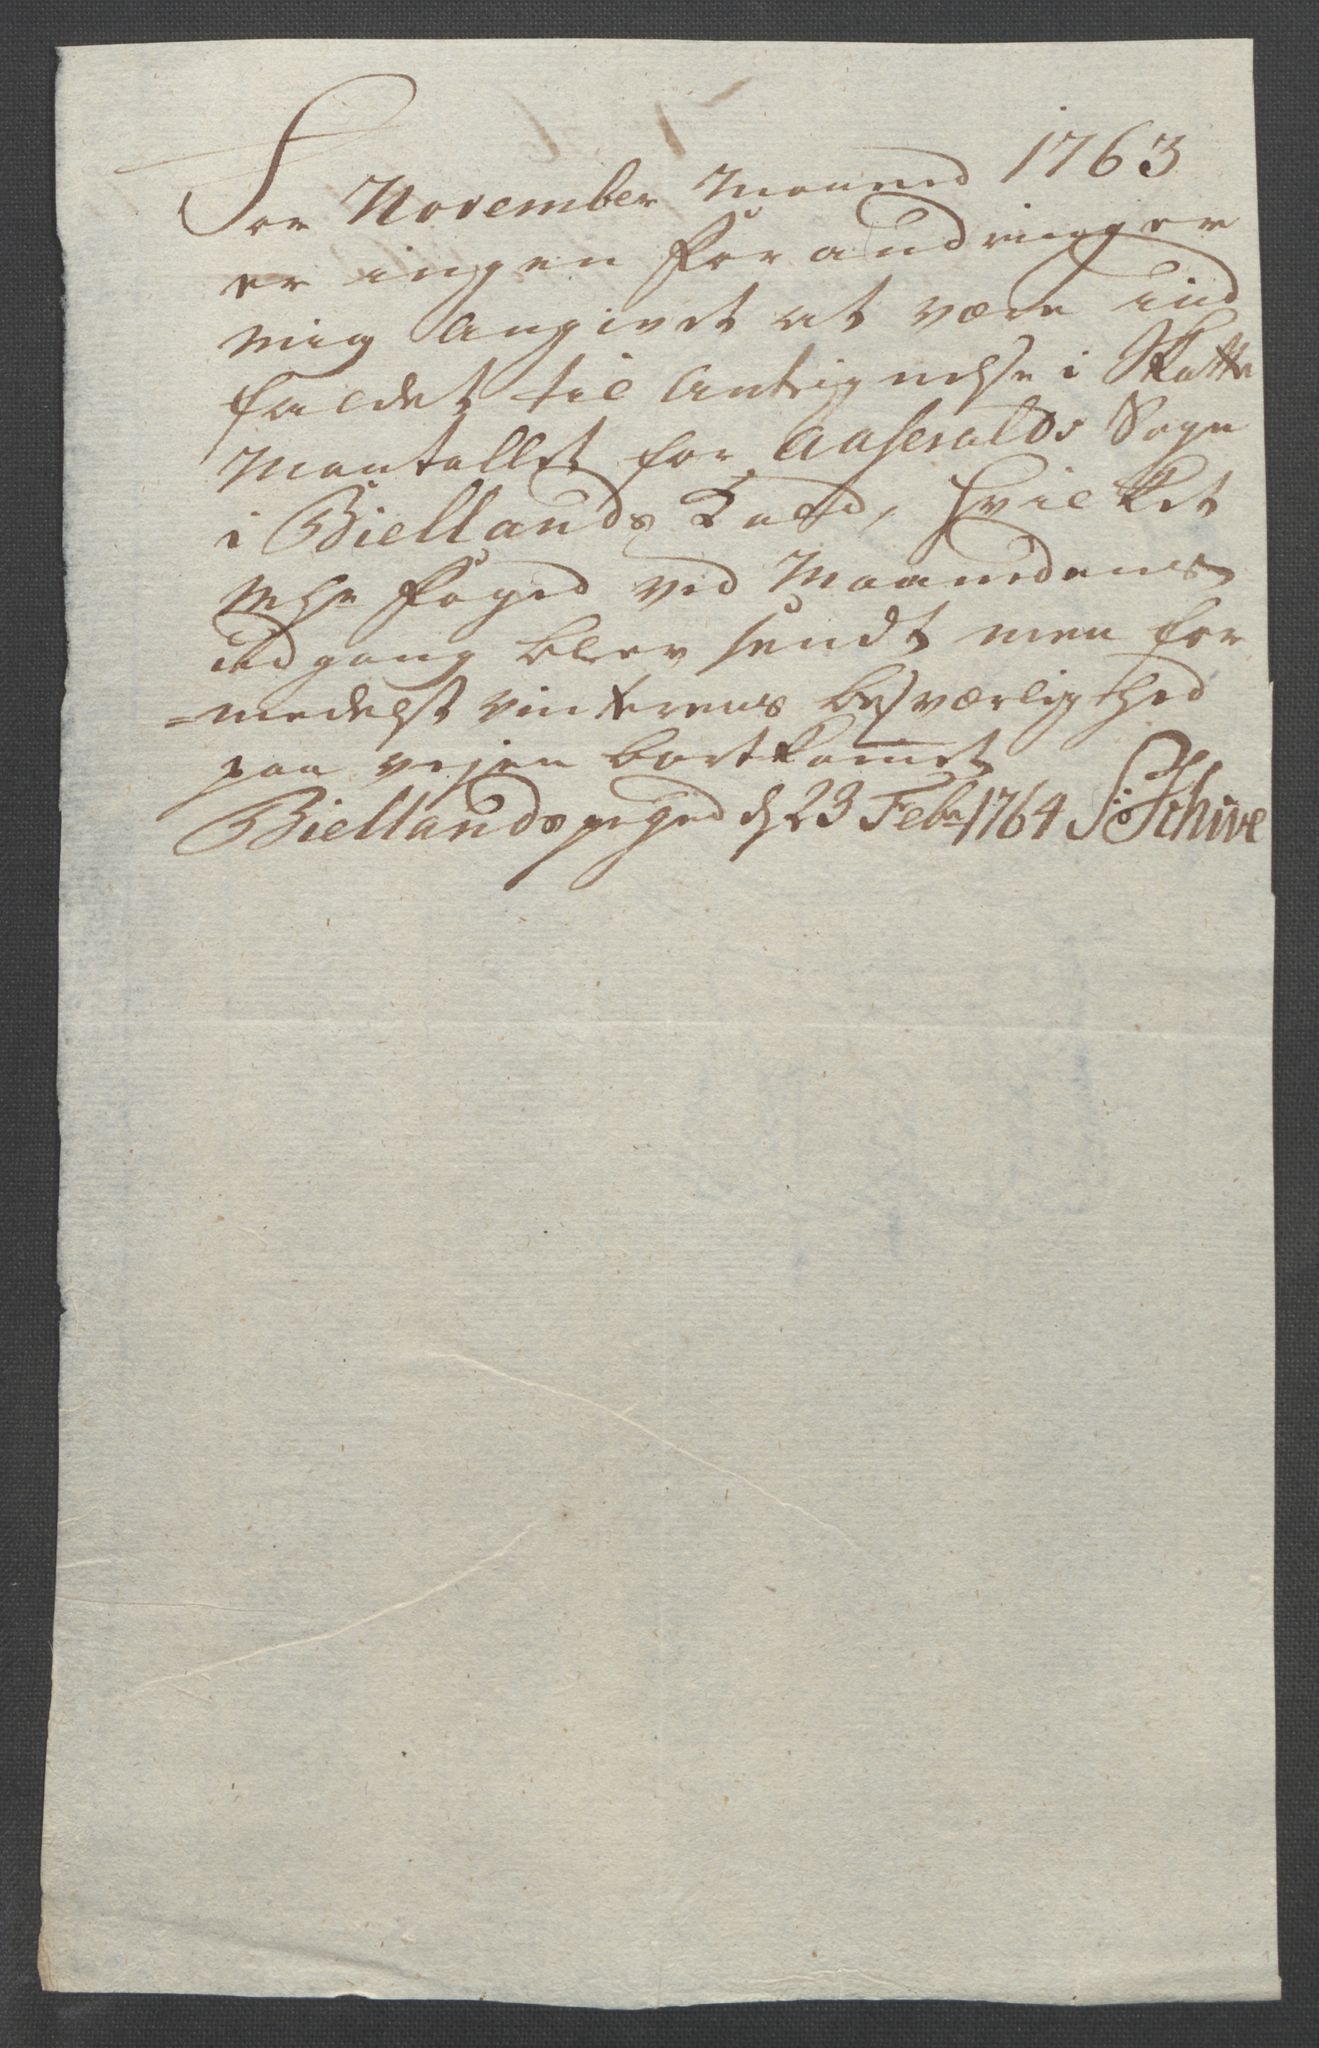 For November Maaned 1763
er ingen Forandringer
mig Angivet at være ind
faldet til Antegnelse i Skatte
Mantallet for Aaseralds Sogn
i Biellands Kald, hvilket
Mhr Foged ved Maanedens
udgang blev sendt men for
=medelst vinterens besværlighed
paa vejen bortkommet
Biellandspgrd d 23 Febr 1764 S: Schive